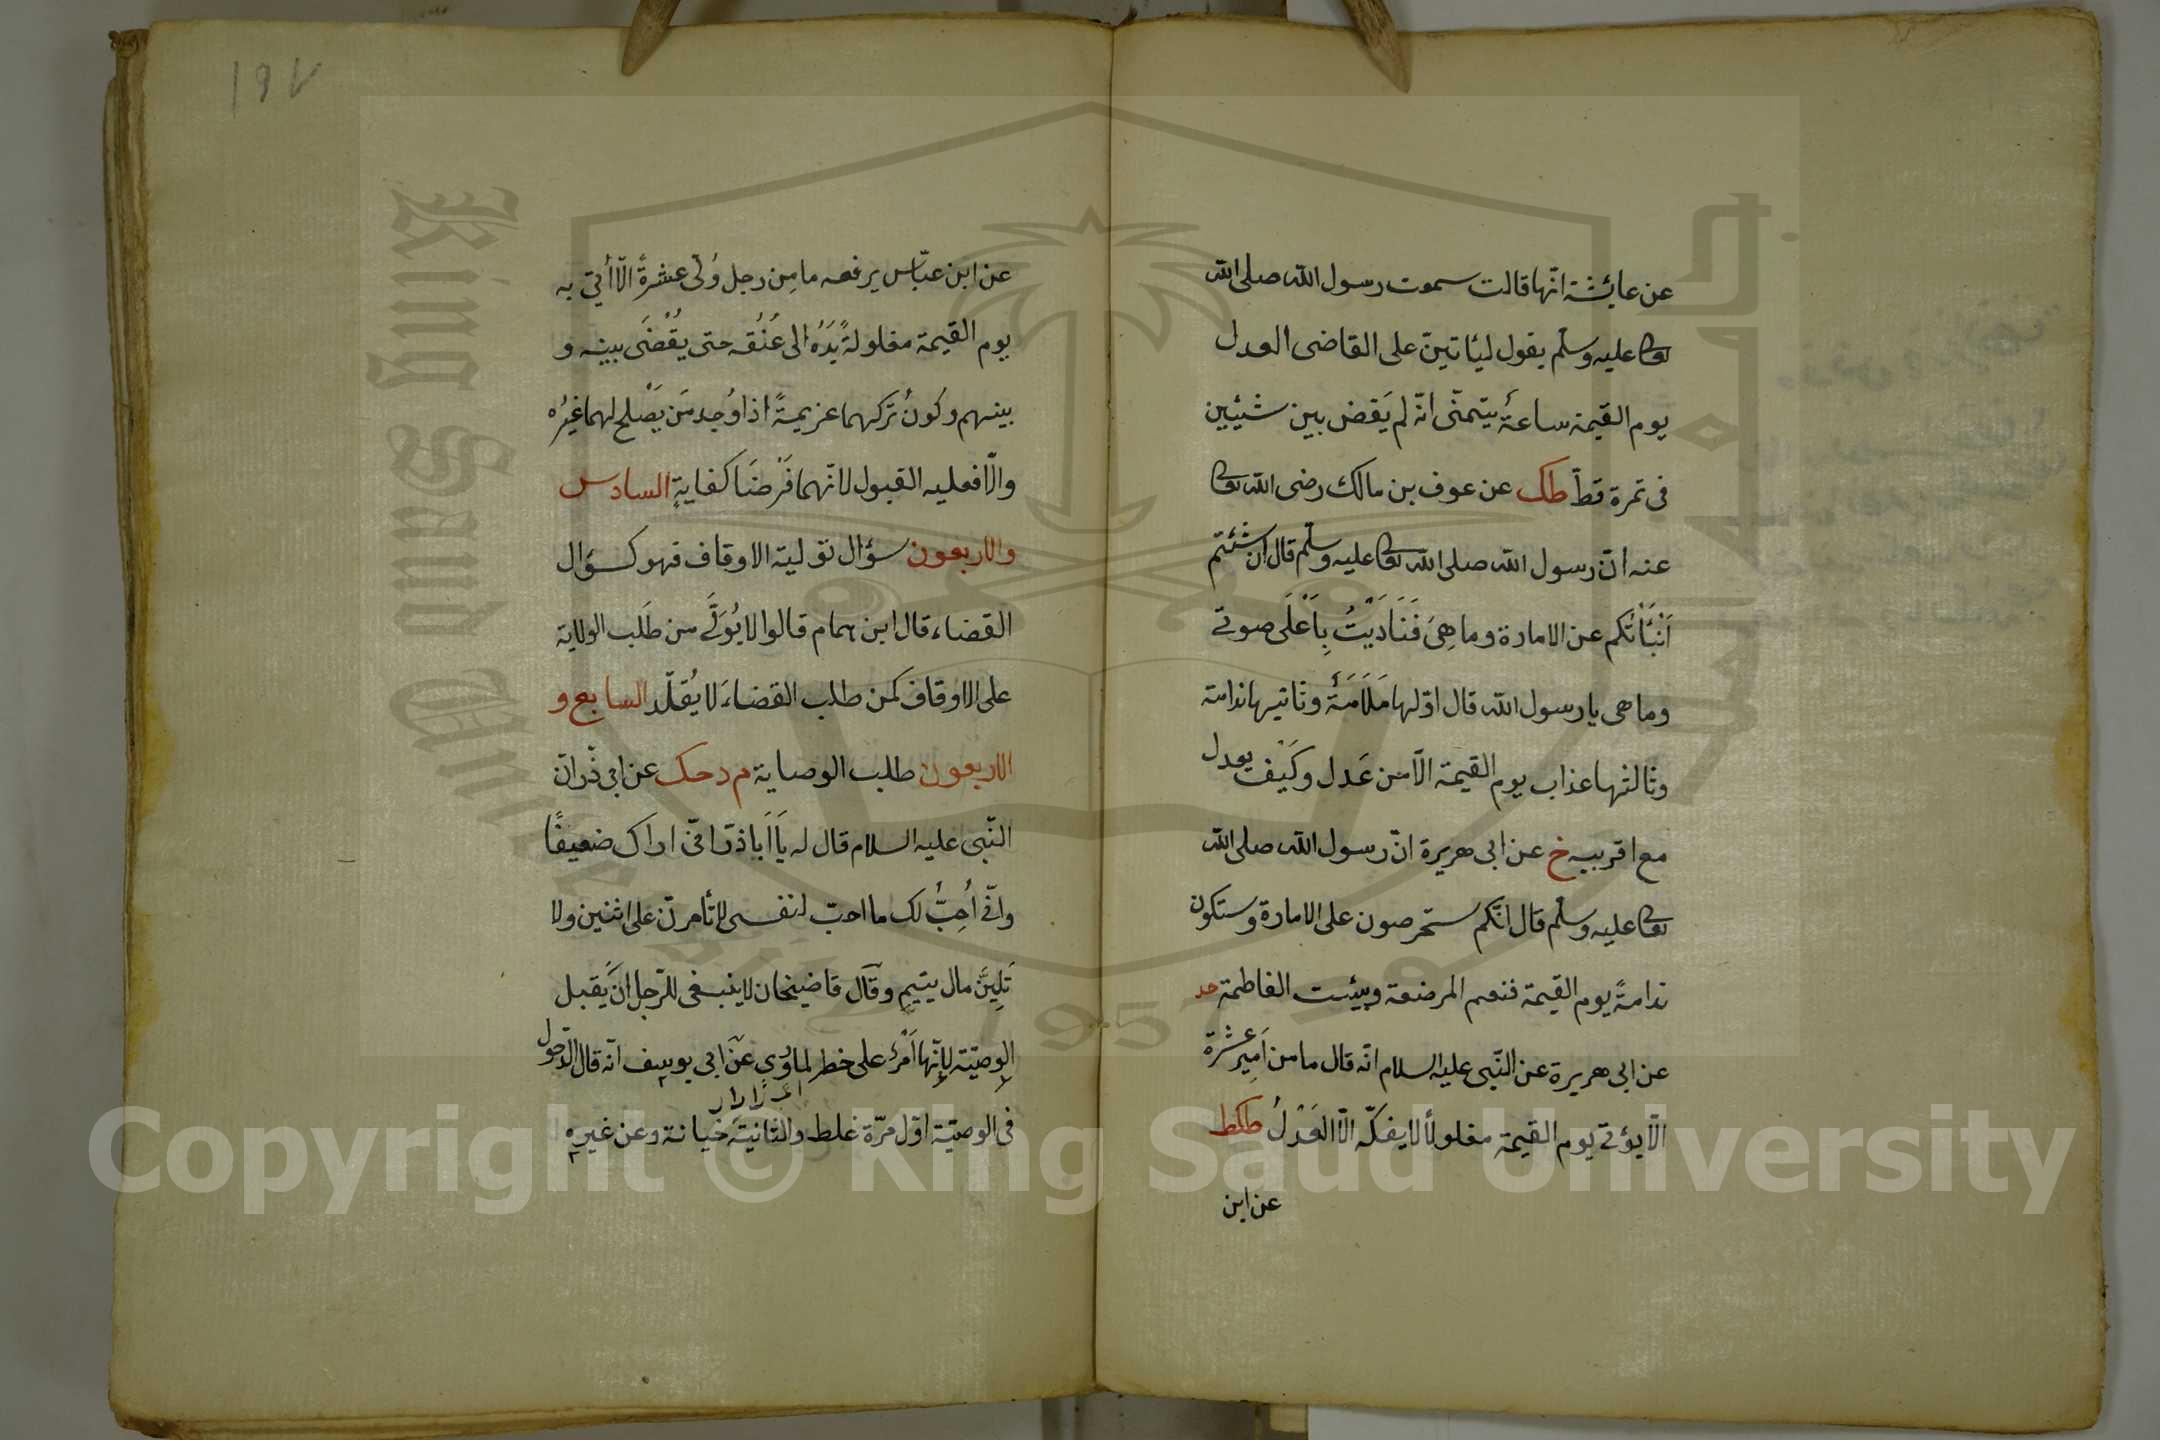 عن عايشة انّها قالت سمعت رسول الله صلى الله
تعالى عليه وسلّم يقول ليأتينّ على القاضى العدل
يوم القيمة ساعة يتمنّى انّه لم يَقض بين شيئين
فى تمرة قطّ طك عن عوف بن مالك رضى الله تعالى
عنه انّ رسول الله صلى الله تعالى عليه وسلّم قال ان شئتم
اَنْبَأتُكم عن الامارة وما هِىَ فَنَادَيْتُ بِاَعْلَى صوتى
وما هى يا رسول الله قال اوّلها مَلَامَةٌ وثانيها ندامة
وثالثها عذاب يوم القيمة الّا من عَدل وكَيْفَ يعدل
مع اقربيه خ عن ابى هريرة انّ رسول الله صلى الله
تعالى عليه وسلّم قال انّكم ستحرصون على الامارة وستكون
ندامةً يوم القيمة فنعم المرضعة وبئست الفاطمة حد
عن ابى هريرة عن النّبى عليه السلام انّه قال ما من اَمِير عشرة
الّا يؤتى يوم القيمة مغلولًا لا يفكّه الّا العَدْلُ طكط
عن ابن
١٩٧
عن ابن عبّاس يرفعه ما مِن رجل وُلّى عشرةً الّا أُتِىَ به
يوم القيمة مغلولةً يَدُهُ الى عُنُقه حتى يُقْضَى بينه و
بينهم وكونُ تَركهما عزيمةً اذا وُجد مَن يَصْلح لهما غيرُه
والّا فعليه القبول لانّهما فَرْضَا كفايةٍ السادس
والاربعون سؤال تولية الاوقاف فهو كسؤال
القضاء قال ابن همام قالوا لا يُوَلَّى من طَلَب الولاية
على الاوقاف كمن طلب القضاءَ لا يُقلّد السابع و
الاربعون طلب الوصاية م د حك عن ابى ذرّ انّ
النّبى عليه السلام قال له يَا اَبا ذرّ انّى اراك ضعيفًا
وانّى اُحِبُّ لك ما احبّ لنفسى لا تأمرنّ على اثنين ولا
تَلِيَنَّ مال يتيم وقال قاضيخان لا ينبغى للرّجل ان يَقبل
الوصيّة لانّها اَمْرٌ على خطر لما روى عن ابى يوسف انّه قال الدّخول
فى الوصيّة اوّل مرّة غلط والثانية خيانة وعن غيره